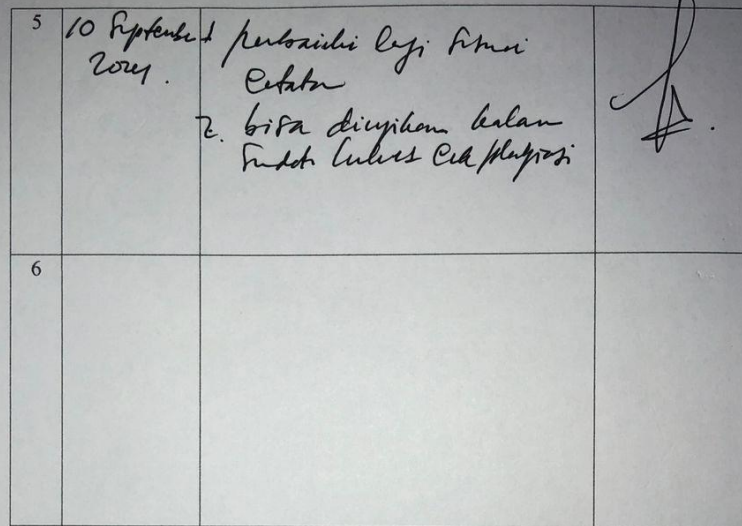 5
10 September
2024.
1 perbaiki lagi sesuai
catatan
2. bisa diujikan kalau
sudah lulus cek plagiasi
6